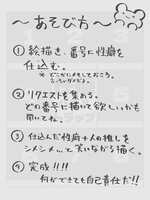 〜あそびカ〜
① 絵描き、番号に性癖を
仕込む。
※ どこかにメモしておこう。
② リクエストを集める。
どの番号に描いて欲しいかも
聞いてね。
③ 仕込んだ性癖＋人の推しを
シメシメ…と笑いながら描く。
④ 完成!!!!
何ができても自己責任だ!!